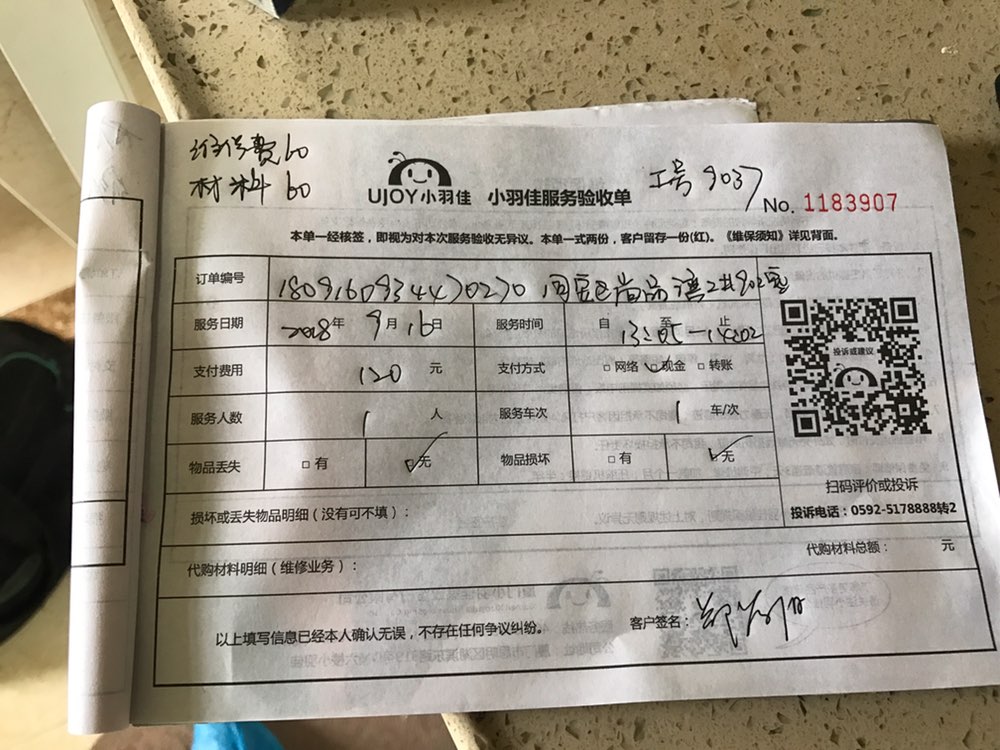 维保费60
材料 60
UJOY小羽佳 小羽佳服务验收单
工号 9037
No. 1183907
本单一经核签，即视为对本次服务验收无异议。本单一式两份，客户留存一份(红)。《维保须知》详见背面。
订单编号 18091609344470270
服务日期 2018年 9月16日 服务时间 自 至 止 13:05—14:02
支付费用 120 元 支付方式 □网络 □现金 □转账
服务人数 1 人 服务车次 1 车/次
物品丢失 □有 ☑无 物品损坏 □有 ☑无
投诉或建议
扫码评价或投诉
投诉电话：0592-5178888转2
损坏或丢失物品明细（没有可不填）：
代购材料明细（维修业务）： 代购材料总额： 元
以上填写信息已经本人确认无误，不存在任何争议纠纷。 客户签名：